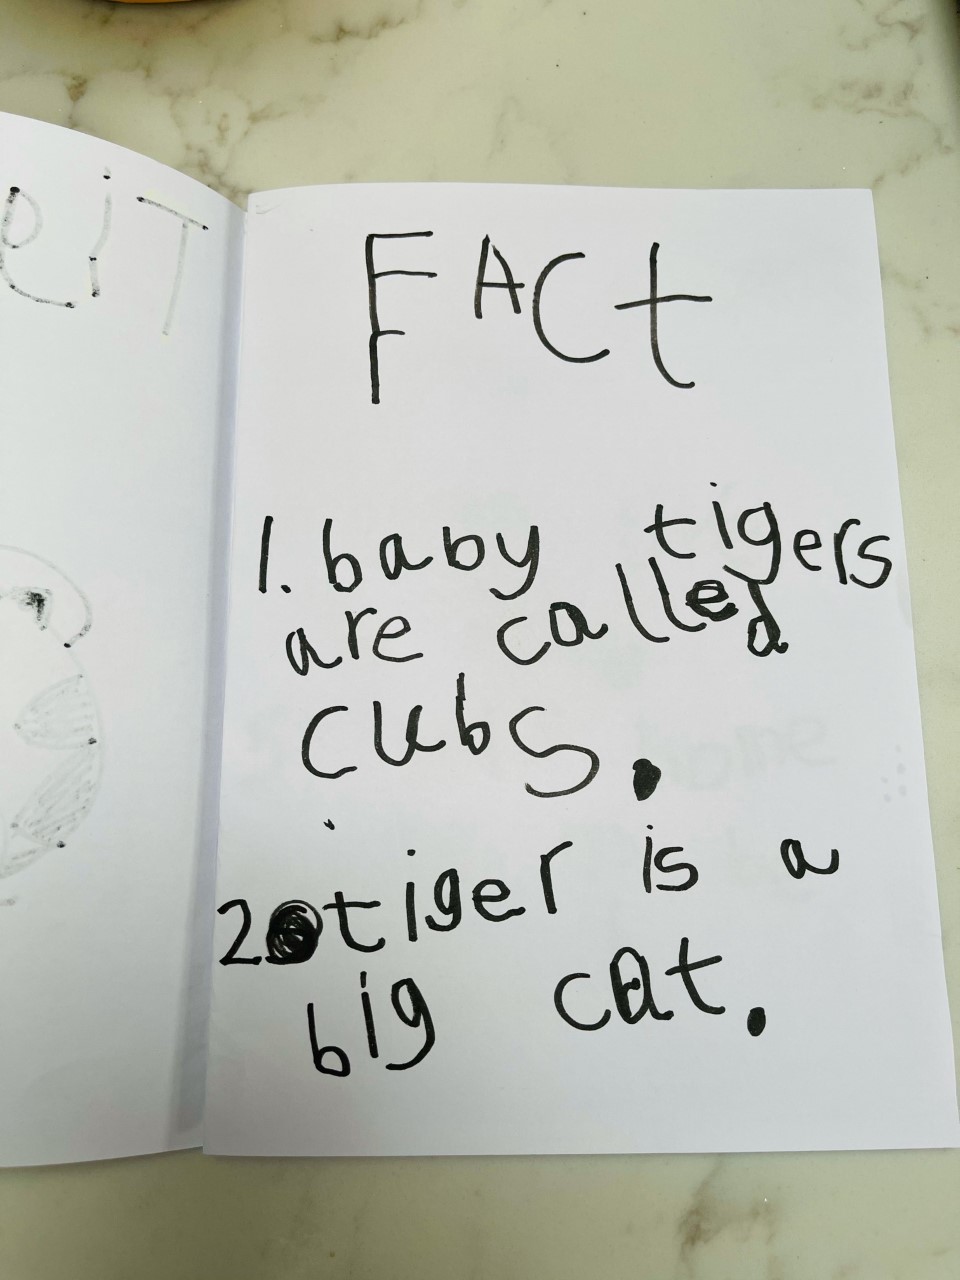 FACt
1. baby tigers
are called
cubs.
2. tiger is a
big cat.